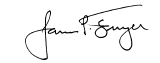 James P. Sawyer